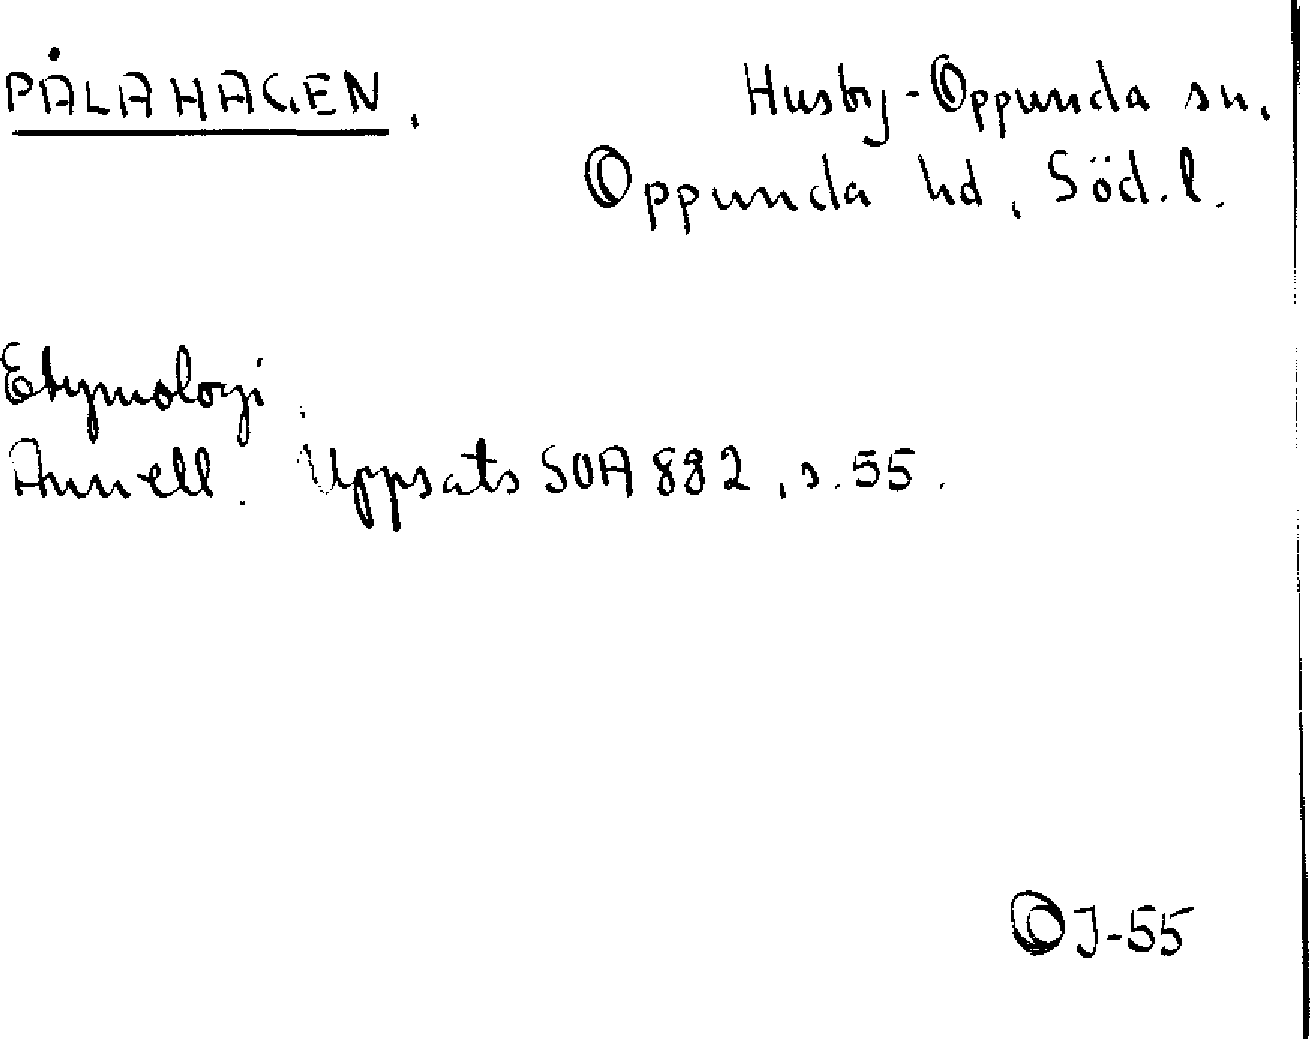 PÅLAHAGEN. Husby-Oppunda sn.
Oppunda hd. Söd.l.
Etymologi.
Annell. Uppsats SOA 882, s. 55.
OJ-55